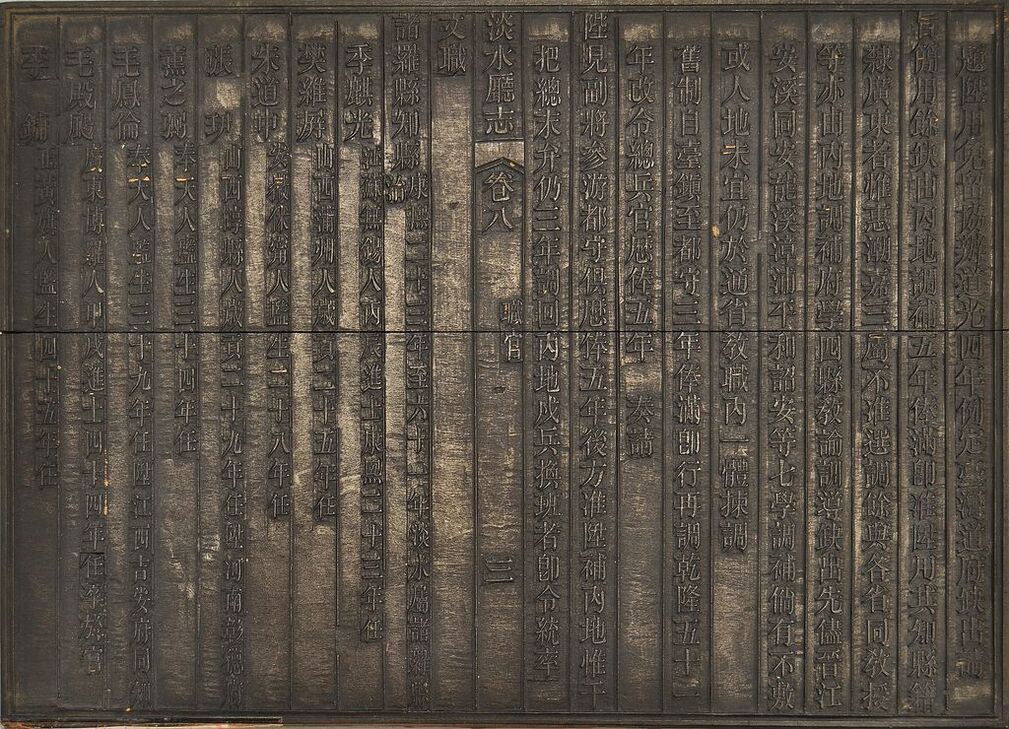 年例定臺灣道府缺出請
旨簡用餘缺由內地調補五年俸滿卽准陞用其知縣籍
隸廣東者惟惠潮嘉三屬不准選調餘與各省同敎授
等亦由內地調補府學四縣敎諭訓導缺出先儘晉江
安溪同安龍溪漳浦平和詔安等七學調補倘有不敷
或人地未宜仍於通省敎職內一體揀調
舊制自臺鎮至都守三年俸滿卽行再調乾隆五十二
年改令總兵官歷俸五年 奏請
陛見副將參游都守俱歷俸五年後方准陞補內地惟千
把總末弁仍三年調回內地戍兵換班者卽令統率
淡水廳志 卷八 職官 三
文職
諸羅縣知縣 康熙二十三年至六十一年淡水屬諸羅縣治
季麒光 江蘇無錫人丙辰進士康熙二十三年任
樊維屏 山西蒲州人歲貢二十五年任
朱道中 安徽休寧人監生二十八年任
張𤥢 山西崞縣人歲貢二十九年任陞河南彰德府
董之弼 奉天人監生三十四年任
毛鳳倫 奉天人監生三十九年任陞江西吉安府同知
毛殿颺 廣東博羅人甲戌進士四十四年任卒於官
李鏞 正黃旗人監生四十五年任